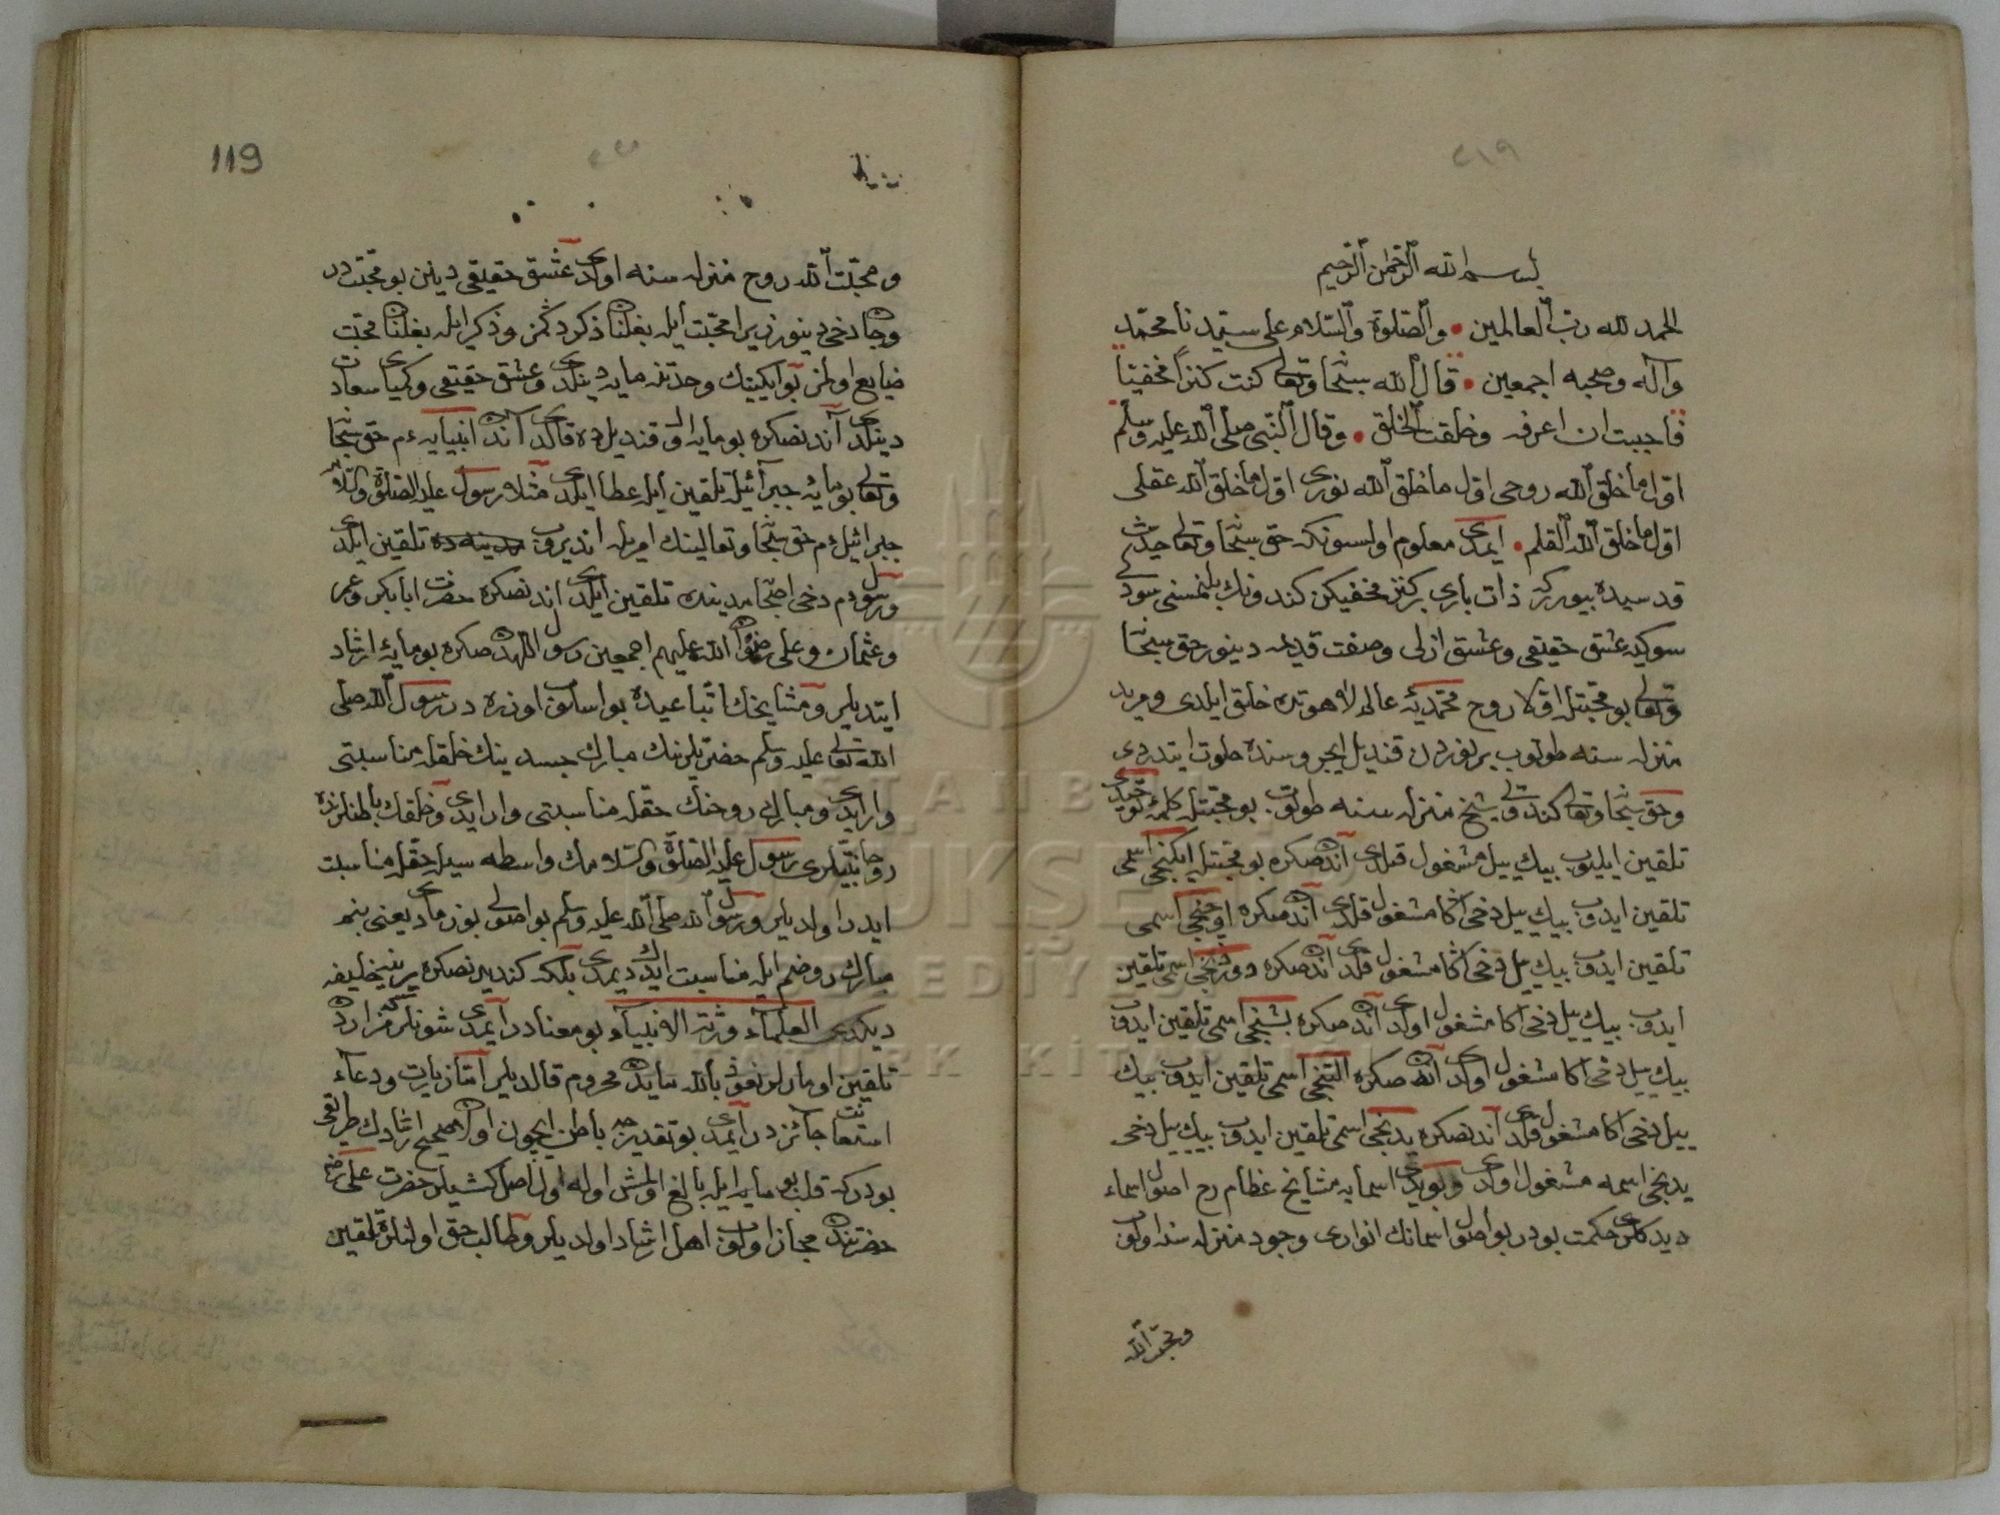 بسم الله الرحمن الرحيم
الحمد لله رب العالمين • والصلوة والسلام على سيدنا محمد
وآله وصحبه اجمعين • قال الله سبحا وتعالى كنت كنزاً مخفيتا
فاحببت ان اعرف وخلقت الخلق • وقال النبي صلى الله عليه وسلم
اول ما خلق الله روحى اول ما خلق الله نورى اول ما خلق الله عقلى
اول ما خلق الله القلم • ايمدى معلوم اولسونكه حق سبحا وتعالى حديث
قدسيده بيورركه ذات بارى بر كنز مخفيكن كندونك بلنمسنى سودى
سوكيه عشق حقيقى وعشق ازلى وصفت قديمه دينور حق سبحا
وتعالى بو محبتله اولا روح محمديه عالم لاهوتده خلق ايلدى ومريد
منزله سنه طوتوب بر نوردن قنديل ايچروسنده خلوت ايتدردى
وحق سبحا وتعالى كندوى شيخ منزله سنه طوتوب بو محبتله كلمه توحيدى
تلقين ايليوب بيك ييل مشغول قلدى آندنصكره بو محبتله ايكنجى اسمى
تلقين ايدوب بيك ييل دخى اكا مشغول قلدى آندنصكره اوچنجى اسمى
تلقين ايدوب بيك ييل دخى اكا مشغول قلدى آندنصكره دورتنجى اسمى تلقين
ايدوب بيك ييل دخى اكا مشغول اولدى آندنصكره بشنجى اسمى تلقين ايدوب
بيك ييل دخى اكا مشغول اولدى آندنصكره التنجى اسمى تلقين ايدوب بيك
ييل دخى اكا مشغول قلدى آندنصكره يدنجى اسمى تلقين ايدوب بيك ييل دخى
يدنجى اسمه مشغول اولدى وبويدى اسمايه مشايخ عظام رح اصول اسماء
ديدكلرى حكمت بودر بو اصول اسمانك انوارى وجود منزله سنه اولوب
ومحبت الله
119
ومحبت الله روح منزله سنه اولدى عشق حقيقى دينين بو محبتدر
دخى دينور زيرا محبت ايله بغلنان ذكردكمز وذكر ايله بغلنان محبت
ضايع اولمز بو ايكينك وحدتنه مايه دينلدى وعشق حقيقى وكيمياى سعادت
دينلدى آندنصكره بو مايه اول قنديلده قالدى آندن انبيايه ءم حق سبحا
وتعالى بو مايه جبرائيله تلقين ايله عطا ايلدى مثلا رسول عليه الصلوة والسلام
جبرائيل ءم حق سبحا وتعالينك امريله انديروب مدينه ده تلقين ايلدى
ورسول ءم دخى اصحا مدينه ده تلقين ايلدى اندنصكره حضرت ابا بكر وعمر
وعثمان وعلى رضوان الله عليهم اجمعين رسول اللهدن صكره بو مايه ارشاد
ايتديلر ومشايخك اتباعيده بو اسلوب اوزره در رسول الله صلى
الله تعالى عليه وسلم حضرتلرينك مبارك جسدينك خلقله مناسبتى
وار ايدى ومبارك روحنك حقله مناسبتى وار ايدى وخلقك باطنلرنده
روحانيتلرى رسول عليه الصلوة والسلامك واسطه سيله حقله مناسبت
ايدر اولديلر ورسول الله صلى الله عليه وسلم بو اصولى بوزمادى يعنى بنم
مبارك روحم ايله مناسبت ايدك ديمدى بلكه كنديدنصكره يرينه خليفه
ديكدى العلماء ورثة الانبياء بو معنادر ايمدى شونلركه مزاردن
تلقين اومارلر نعوذ بالله محروم قالديلر اما زيارت ودعاء
استعانت جائزدر ايمدى بو تقديرجه باطن ايچون اولان صحيح ارشادك طريقى
بودركه قلب بو مايه ايله بالغ اولمش اوله اول اصل كشيلر حضرت على رضى
حضرتندن مجاز اولوب اهل ارشاد اولديلر وطالب حق اولنلره تلقين